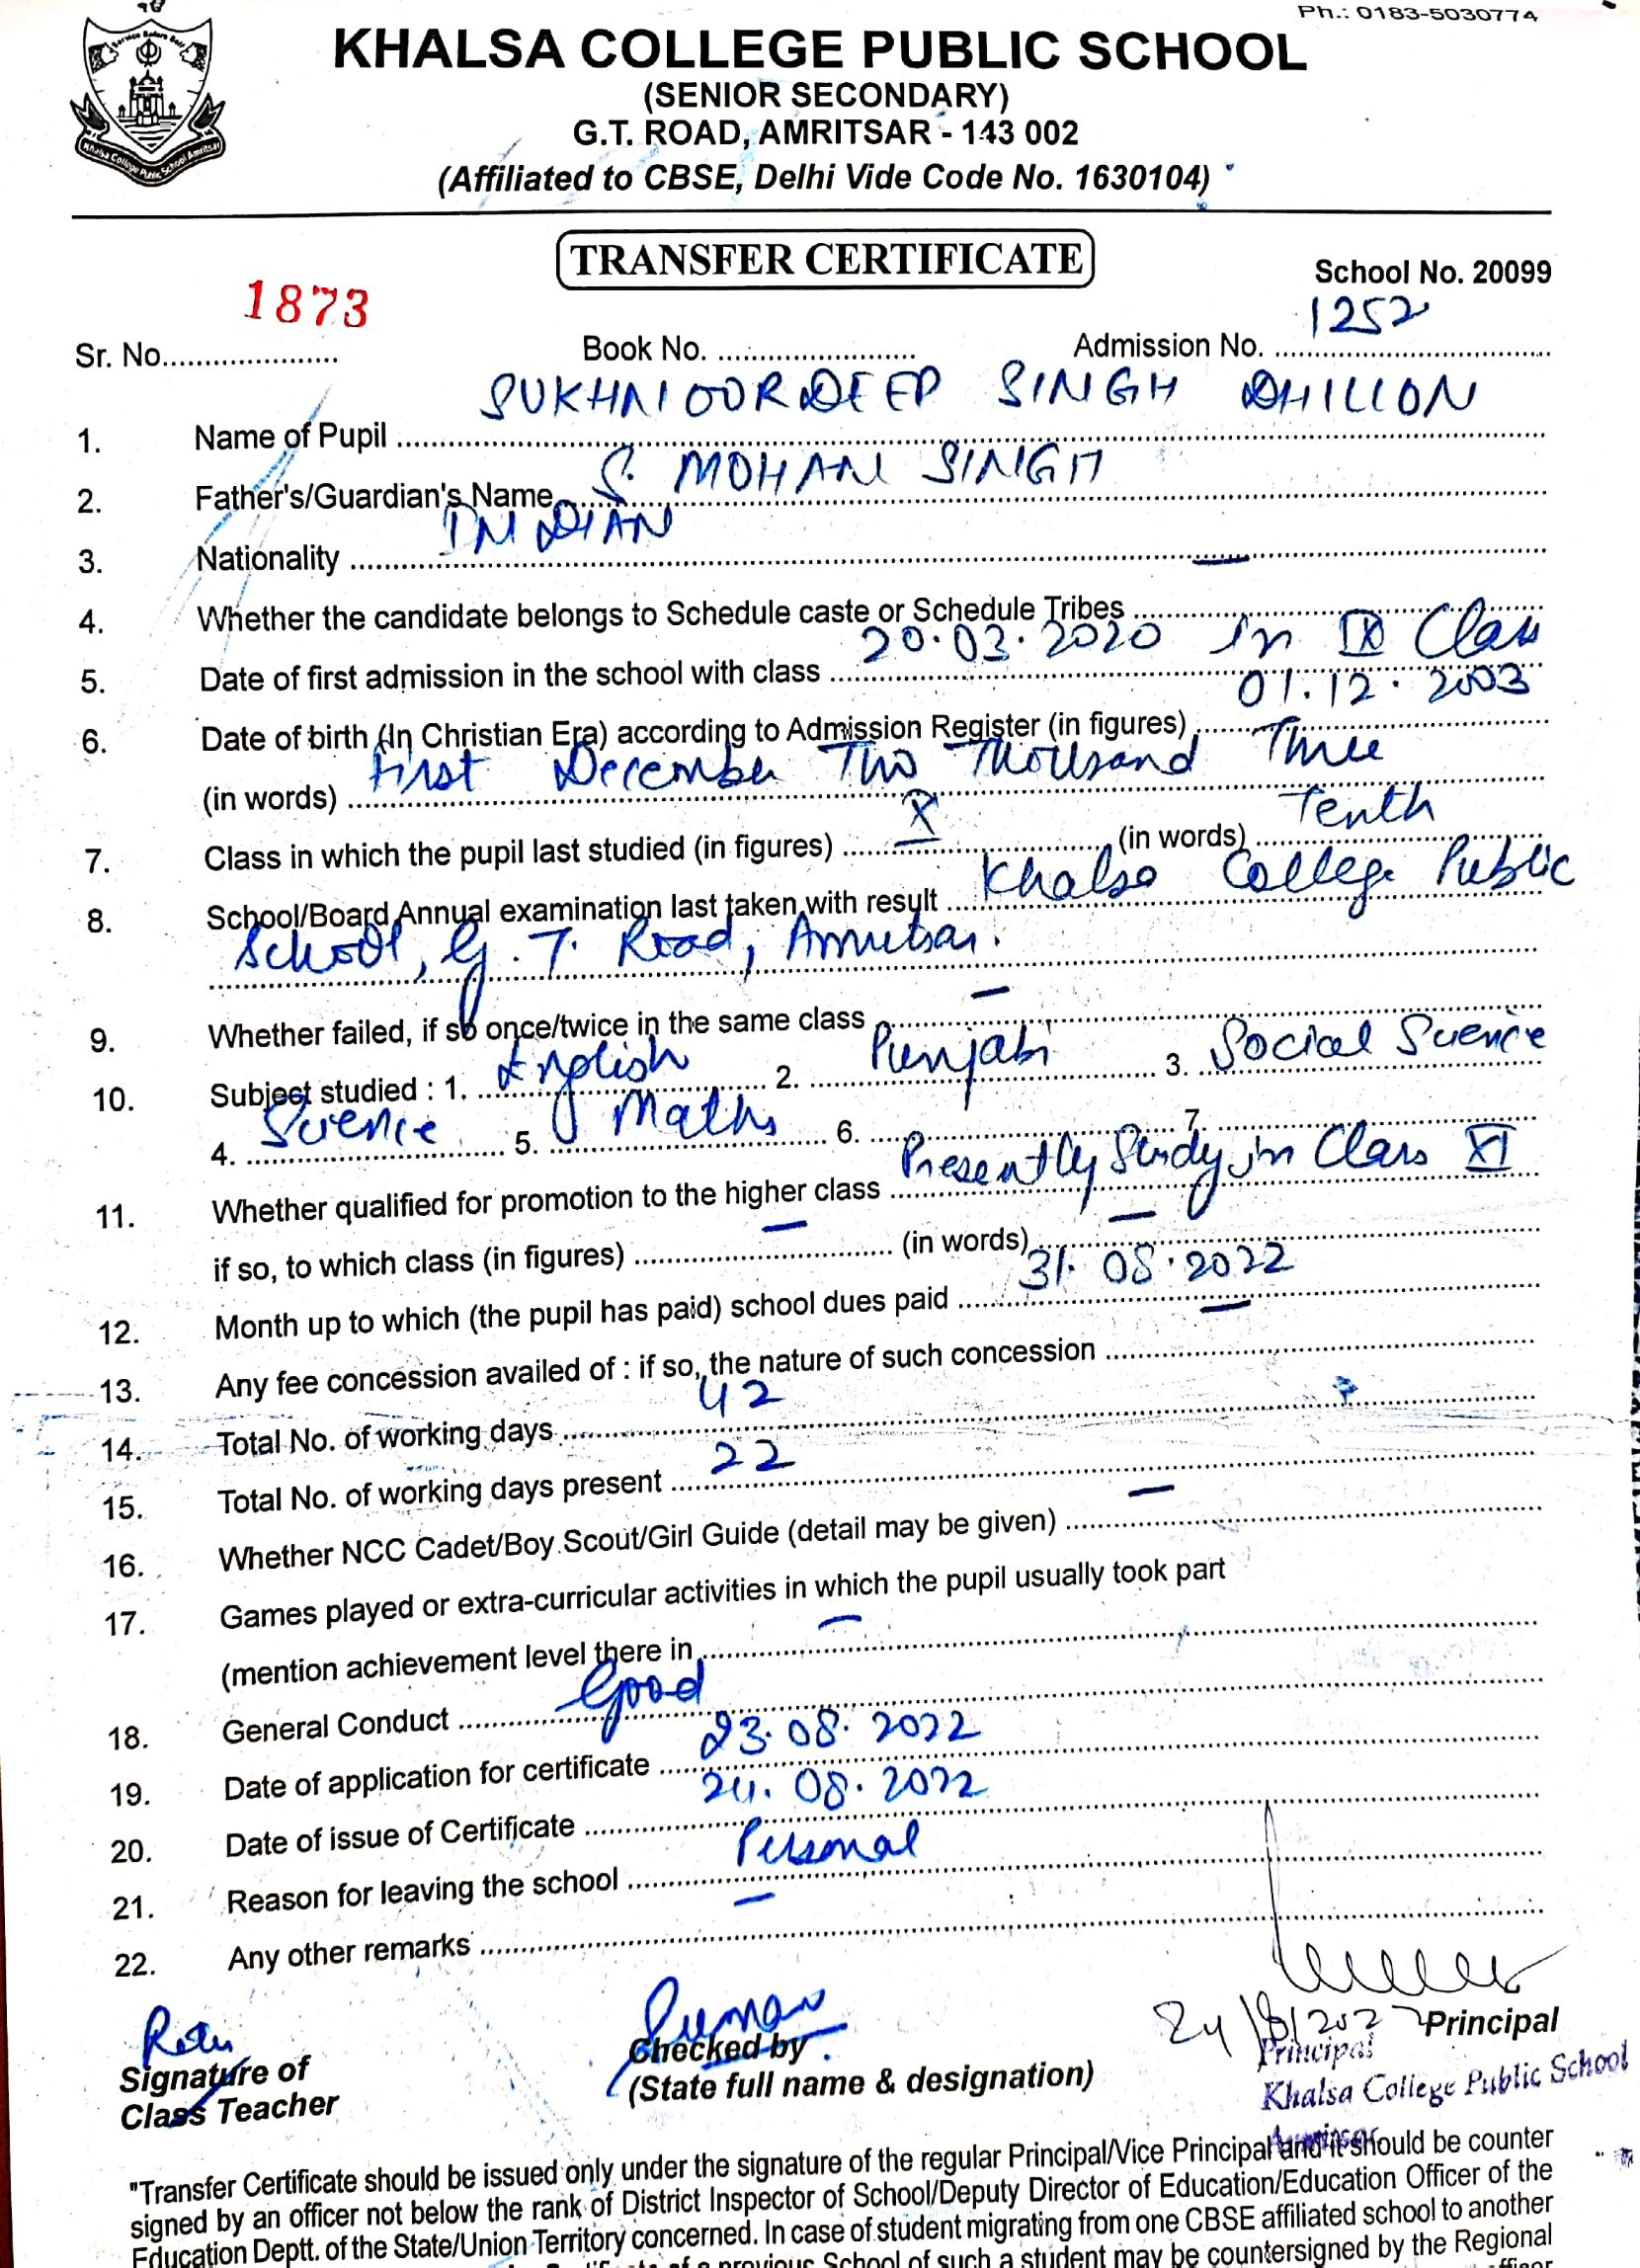 Ph.: 0183-5030774
KHALSA COLLEGE PUBLIC SCHOOL
(SENIOR SECONDARY)
G.T. ROAD, AMRITSAR - 143 002
(Affiliated to CBSE, Delhi Vide Code No. 1630104)
Khalsa College Public School Amritsar
TRANSFER CERTIFICATE
School No. 20099
Sr. No. 1873 Book No. Admission No. 1252
1. Name of Pupil SUKHNOORDEEP SINGH DHILLON
2. Father's/Guardian's Name S. MOHAN SINGH
3. Nationality INDIAN
4. Whether the candidate belongs to Schedule caste or Schedule Tribes —
5. Date of first admission in the school with class 20.03.2020 in IX Class
6. Date of birth (In Christian Era) according to Admission Register (in figures) 01.12.2003
(in words) First December Two Thousand Three
7. Class in which the pupil last studied (in figures) X (in words) Tenth
8. School/Board Annual examination last taken with result Khalsa College Public
School, G.T. Road, Amritsar.
9. Whether failed, if so once/twice in the same class —
10. Subject studied : 1. English 2. Punjabi 3. Social Science
4. Science 5. Maths 6. 7.
11. Whether qualified for promotion to the higher class Presently Study in Class XI
if so, to which class (in figures) — (in words) —
12. Month up to which (the pupil has paid) school dues paid 31.08.2022
13. Any fee concession availed of : if so, the nature of such concession —
14. Total No. of working days 42
15. Total No. of working days present 22
16. Whether NCC Cadet/Boy Scout/Girl Guide (detail may be given) —
17. Games played or extra-curricular activities in which the pupil usually took part
(mention achievement level there in —
18. General Conduct Good
19. Date of application for certificate 23.08.2022
20. Date of issue of Certificate 24.08.2022
21. Reason for leaving the school Personal
22. Any other remarks —
Suman
24/8/2022 Principal
Signature of
Class Teacher
Checked by
(State full name & designation)
Principal
Khalsa College Public School
Amritsar
"Transfer Certificate should be issued only under the signature of the regular Principal/Vice Principal and it should be counter
signed by an officer not below the rank of District Inspector of School/Deputy Director of Education/Education Officer of the
Education Deptt. of the State/Union Territory concerned. In case of student migrating from one CBSE affiliated school to another
of a previous School of such a student may be countersigned by the Regional